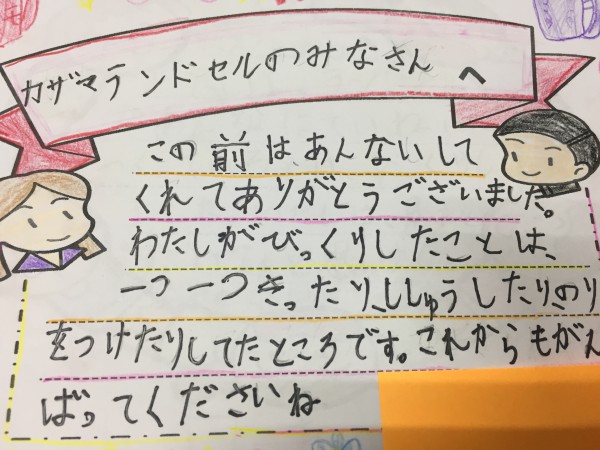 カザマランドセルのみなさんへ
この前はあんないして
くれてありがとうございました。
わたしがびっくりしたことは、
一つ一つきったり、ししゅうしたり、のり
をつけたりしてたところです。これからもがん
ばってくださいね